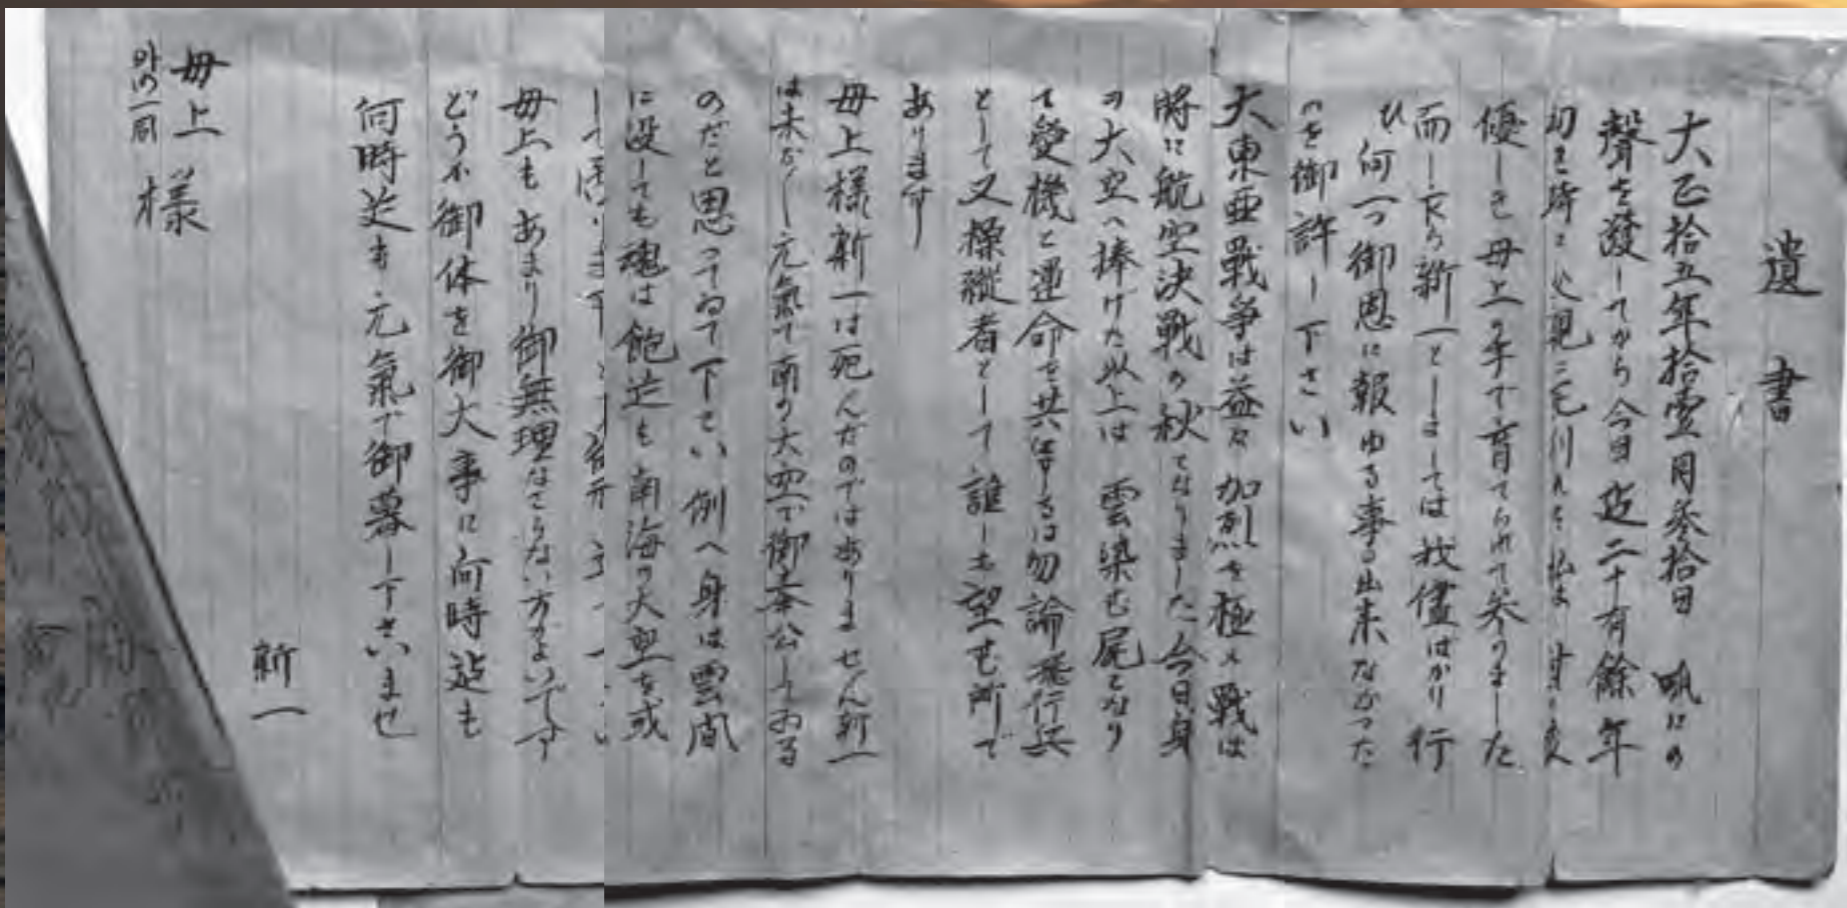 遺書
大正拾五年拾壹月参拾日 呱々の
聲を發してから今日迄二十有餘年
幼き時に
優しき母上の手で育てられて参りました
而し新一としましては我儘ばかり行
ひ何一つ御恩に報ゆる事も出来なかった
のを御許し下さい
大東亜戦争は益々加烈を極め戦は
將に航空決戦の秋となりました今日身
の大空へ捧げた以上は雲染む屍となり
て愛機と運命を共にするは勿論飛行兵
として又操縦者として誰しも望む所で
あります
母上様新一は死んだのではありません新一
は未だ元氣で南の大空で御奉公してゐる
のだと思ってゐて下さい例へ身は雲間
に没しても魂は飽迄も南海の大空を或
して居ります
母上もあまり御無理なさらない方がよいです
どうか御体を御大事に何時迄も
何時迄も元氣で御暮し下さいませ
新一
母上様
外の一同様